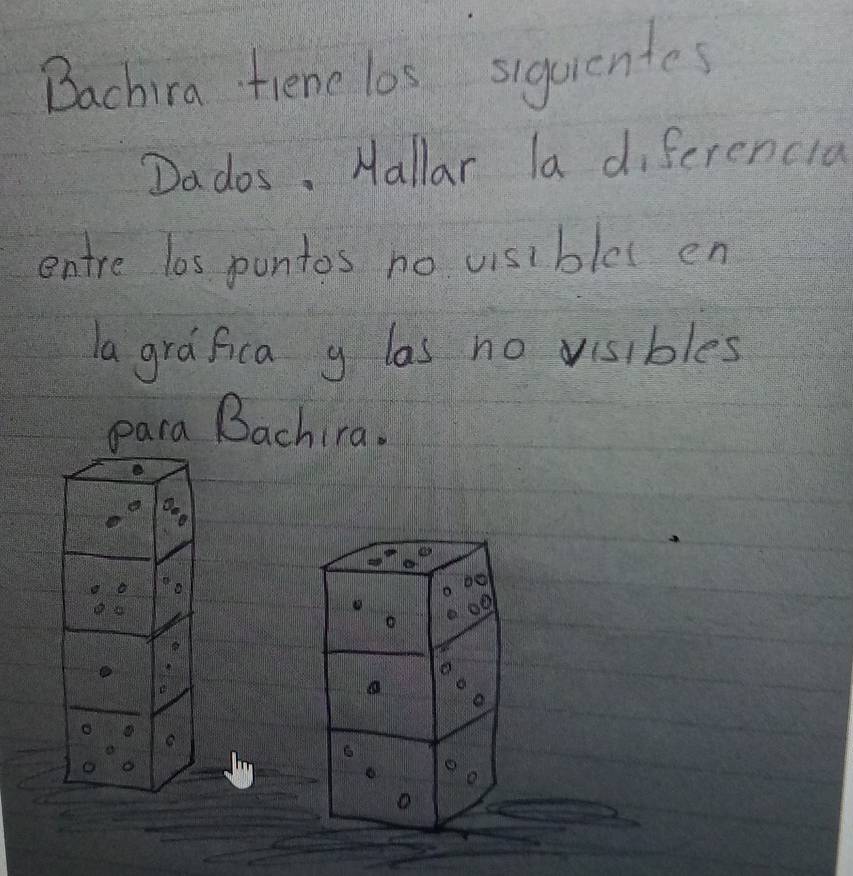 Bachira tiene los siguientes
Dados. Hallar la diferencia
entre los puntos no visibles en
la gráfica y las no visibles
para Bachira.